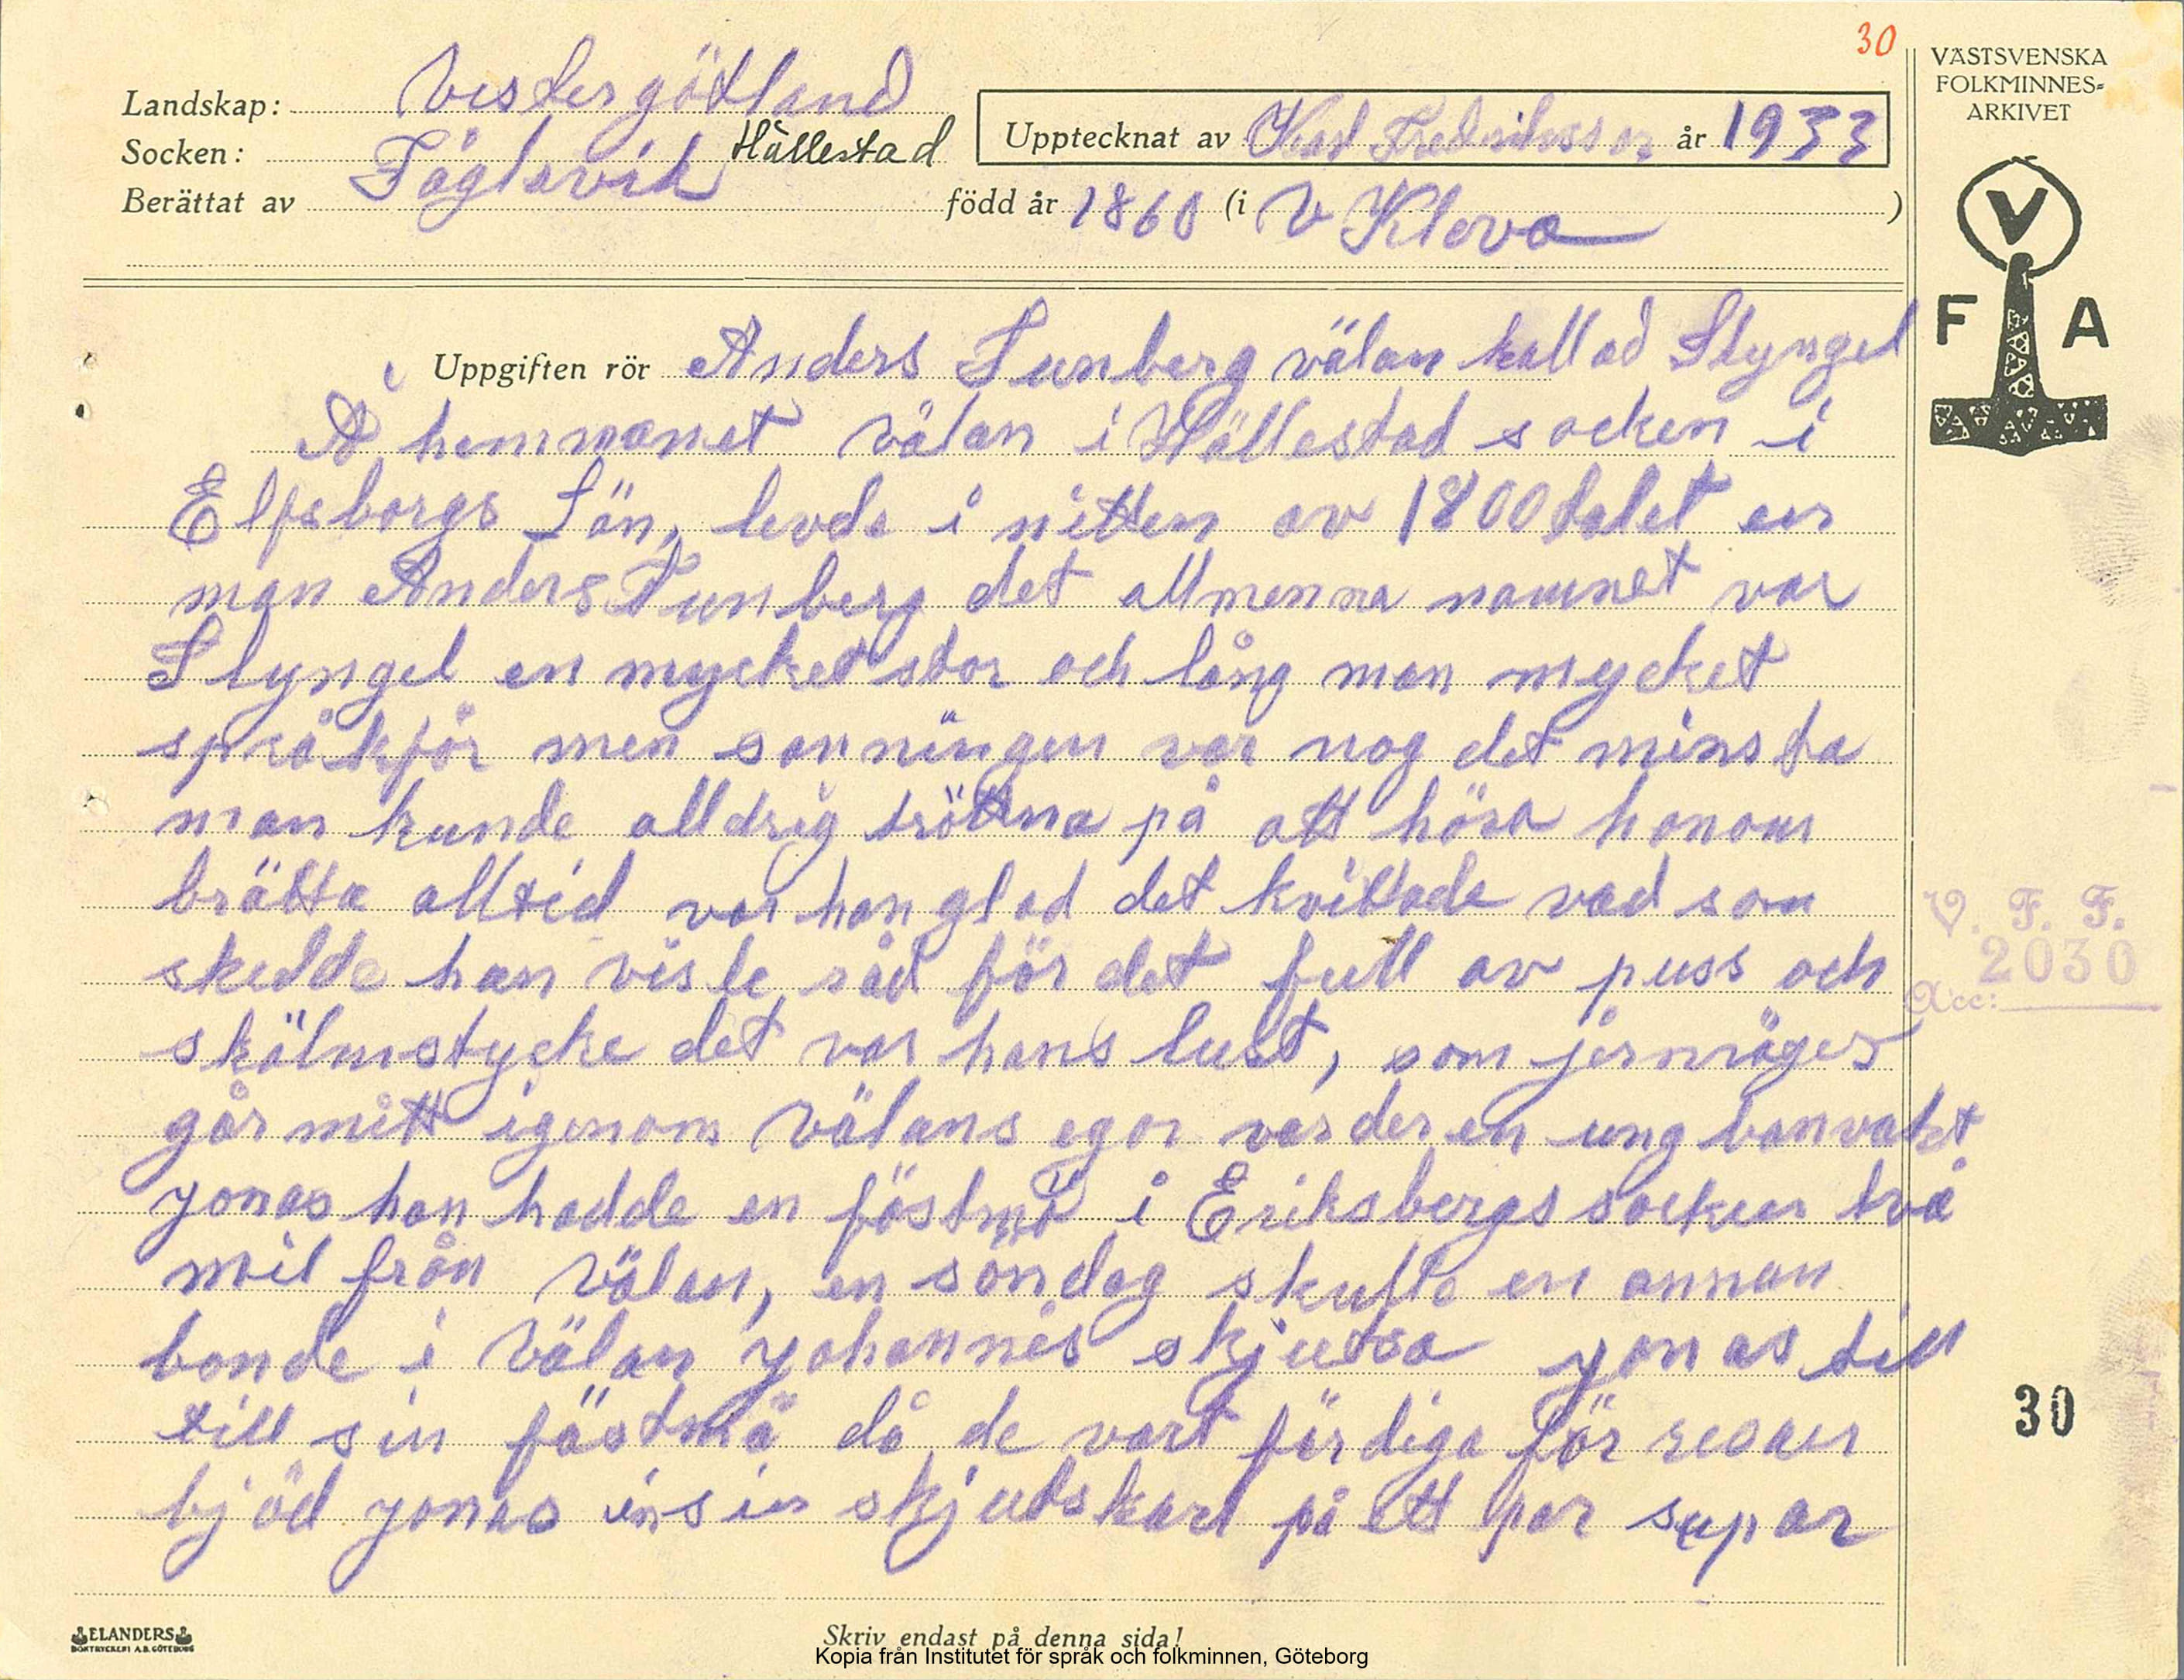 30
VÄSTSVENSKA
FOLKMINNES=
ARKIVET
Landskap: Vestergötland
Socken: Fåglavik Hällestad
Upptecknat av Karl Fredriksson år 1933
Berättat av född år 1860 (i V Kleva )
V
F A
Uppgiften rör Anders Tunberg välan kallad Slyngel
Å hemmanet välan i Hällestad socken i
Elfsborgs Län, levde i mitten av 1800 talet en
man Anders Tunberg det allmenna namnet var
Slyngel en mycket stor och lång man mycket
språkför men sanningen var nog det minsta
man kunde alldrig tröttna på att höra honom
brätta alltid var han glad det kvittade vad som
skedde han viste råd för det full av puss och
skälmstycke det var hans lust, som jernväger
går mitt igenom Välans egor var der en ung banvakt
Jonas han hadde en fästmö i Eriksbergs socken två
mil från Välan, en söndag skulle en annan
bonde i Välan Johannes skjutsa Jonas till
till sin fästmö då de vart färdiga för resan
bjöd Jonas in sin skjutskarl på ett par supar
V. F. F.
2030
Acc:
30
ELANDERS
BOKTRYCKERI A.B. GÖTEBORG
Skriv endast på denna sida!
Kopia från Institutet för språk och folkminnen, Göteborg